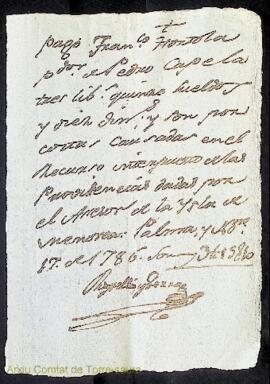 pagó Franco. Frontola
pdor. de Pedro Capela
tres lib.s quinze sueldos
y diez din.s y son por
costas causadas en el
Recurso interpuesto de las
Providencias dadas por
el Asesor de la Ysla de
Menorca. Palma, y
17. de 1786. Son
Arxiu Comtat de Torre Saura